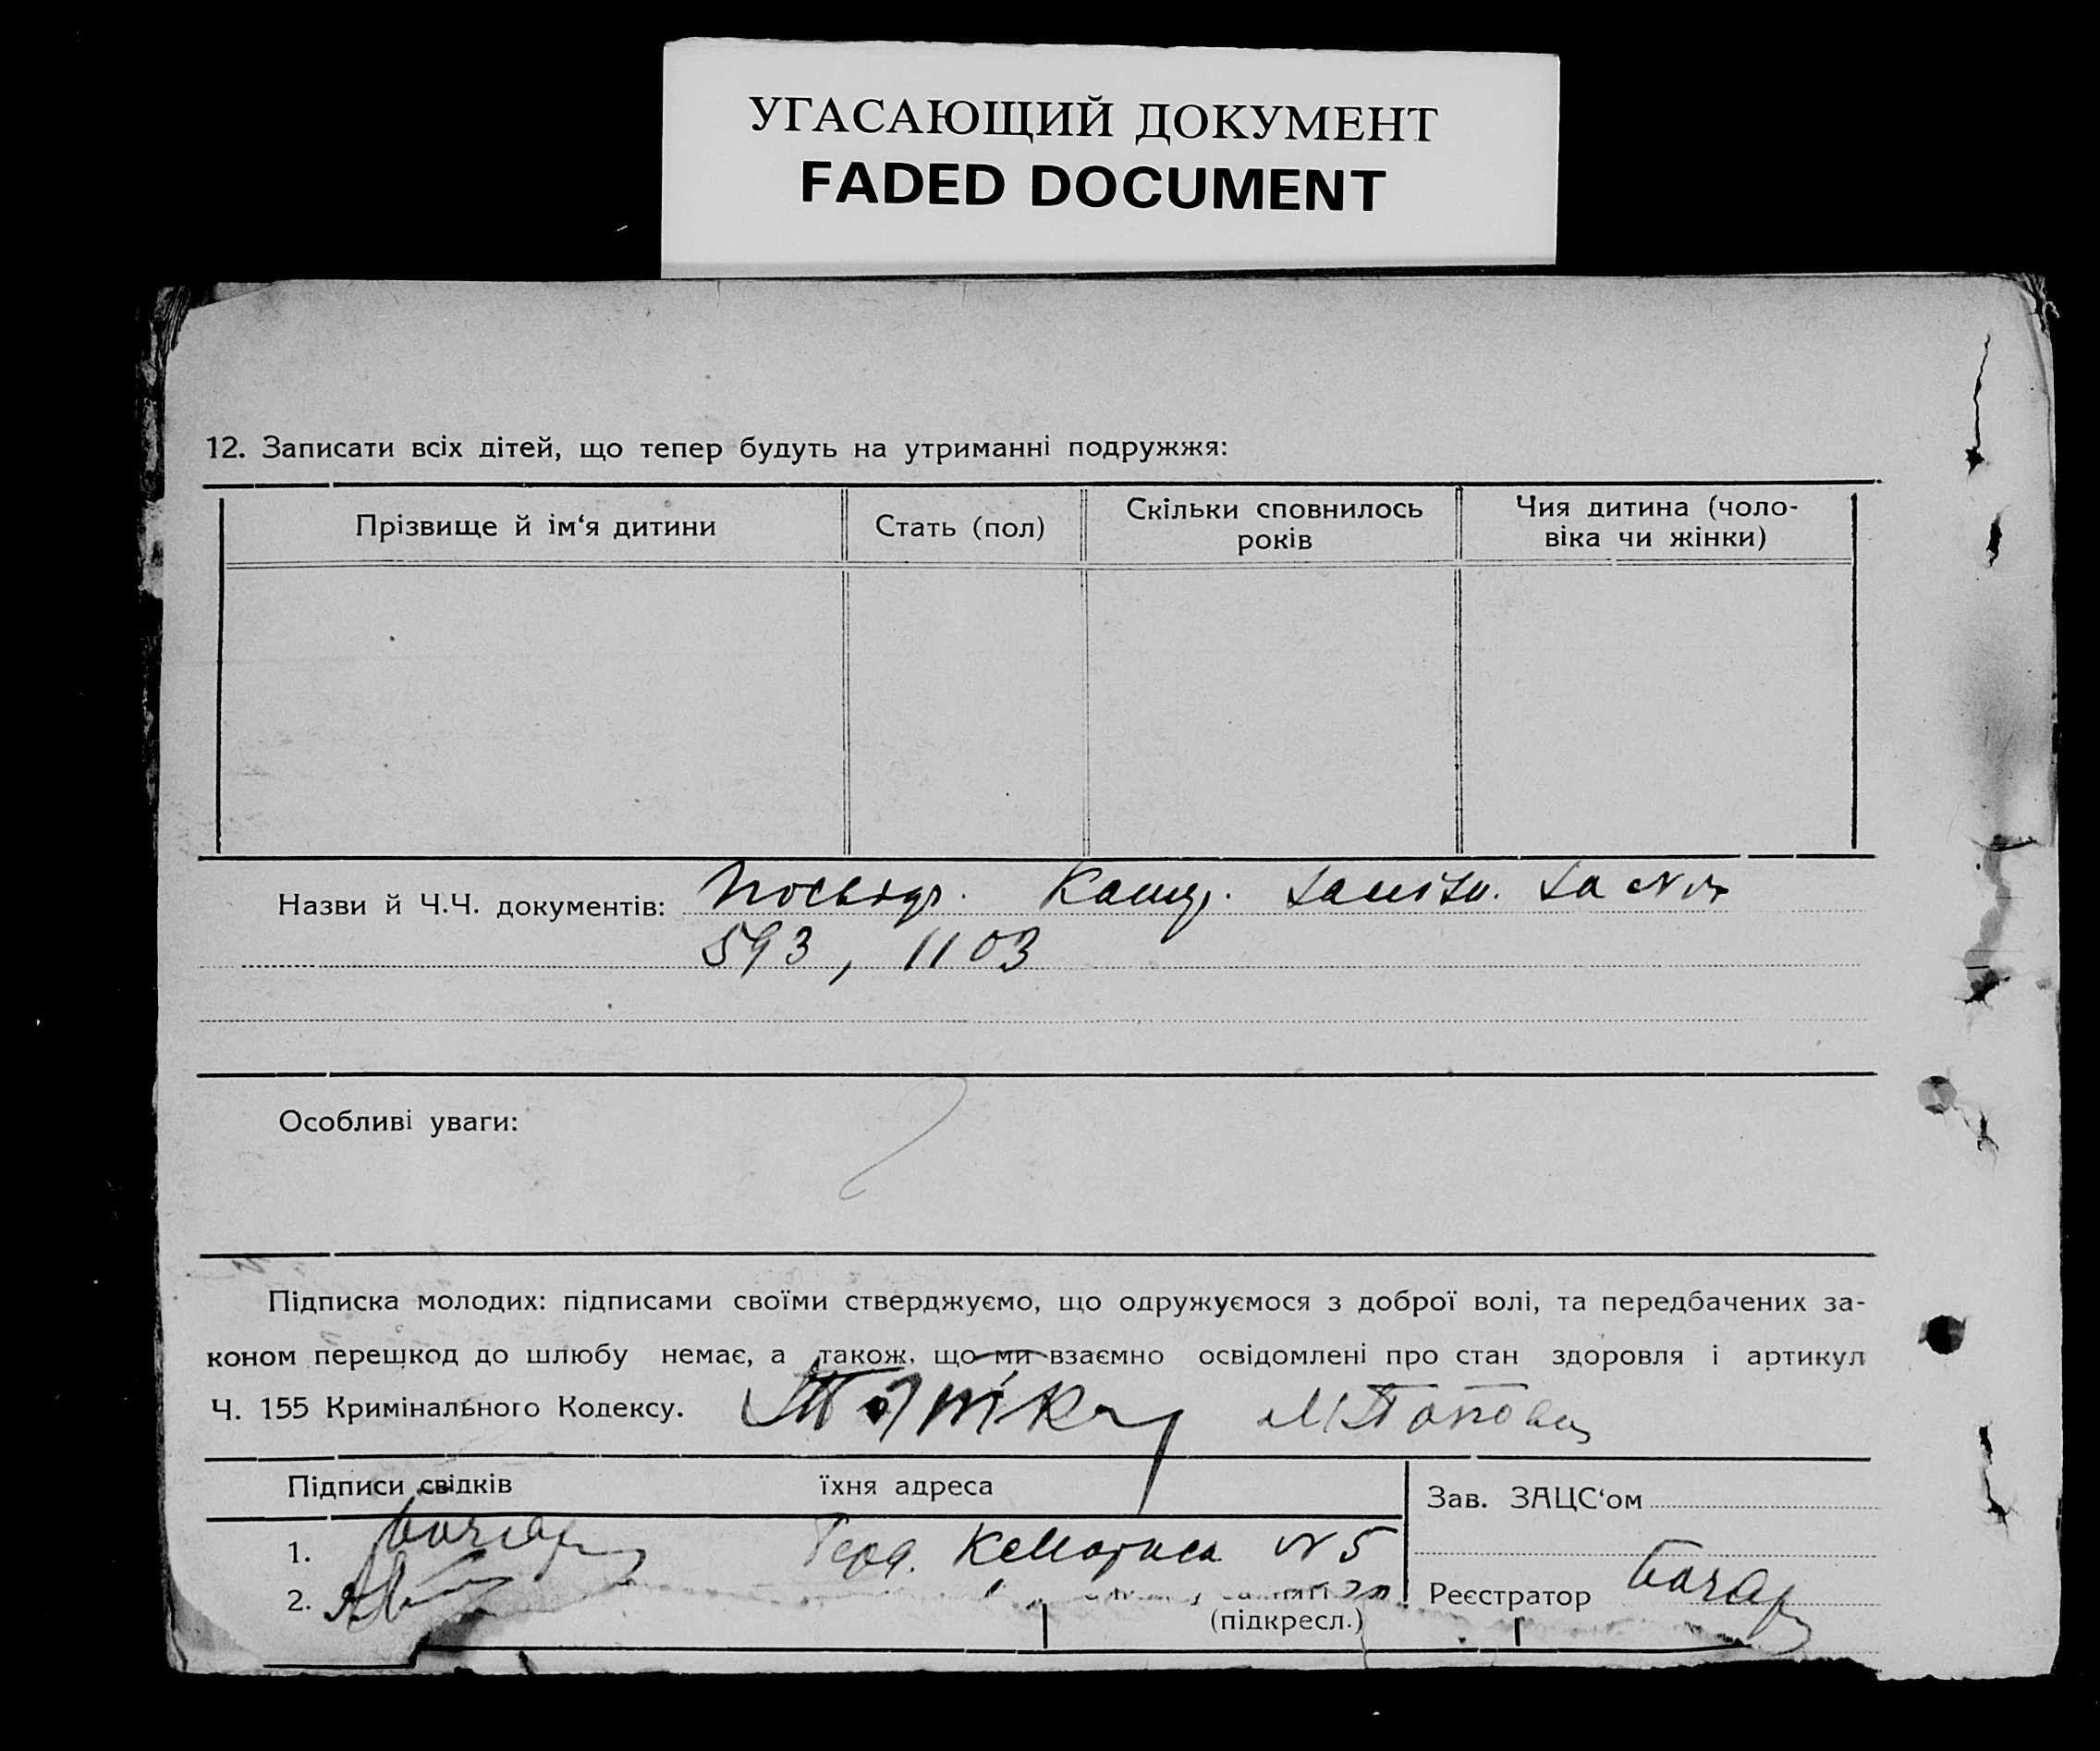 УГАСАЮЩИЙ ДОКУМЕНТ
FADED DOCUMENT
12. Записати всіх дітей, що тепер будуть на утриманні подружжя:
Прізвище й ім‘я дитини
Стать (пол)
Скільки сповнилось
років
Чия дитина (чоло-
віка чи жінки)
Назви й Ч.Ч. документів: Посвідч. за №№
593, 1103
Особливі уваги:
Підписка молодих: підписами своїми стверджуємо, що одружуємося з доброї волі, та передбачених за-
коном перешкод до шлюбу немає, а також, що ми взаємно освідомлені про стан здоровля і артикул
Ч. 155 Кримінального Кодексу. М Попова
Підписи свідків їхня адреса
Зав. ЗАЦС‘ом
1. Бочар N 5
2.
Реєстратор Бочар
(підкресл.)